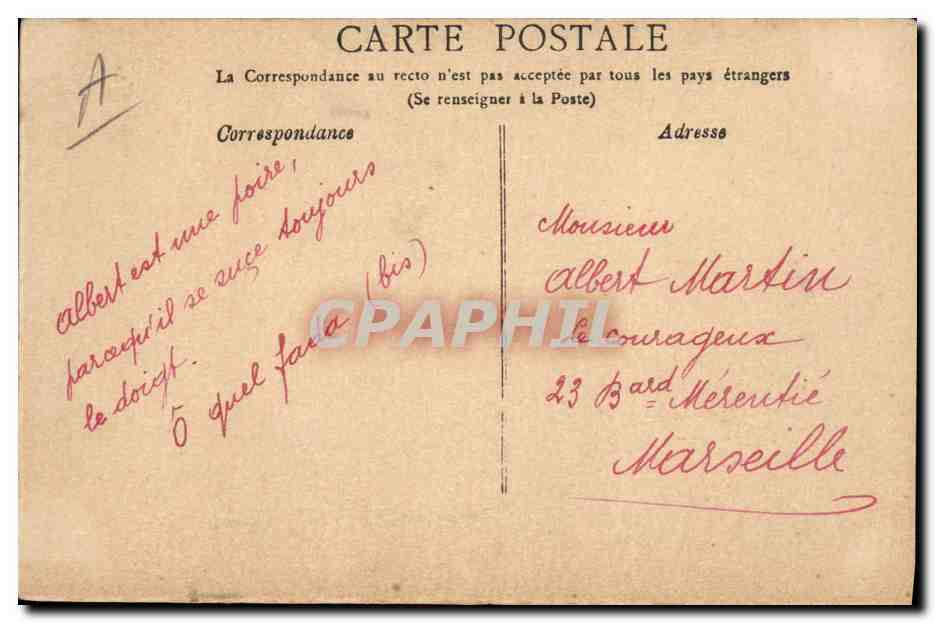 A
CARTE POSTALE
La Correspondance au recto n'est pas acceptée par tous les pays étrangers
(Se renseigner à la Poste)
Correspondance
Albert est une poire,
parcequ'il se suçe toujours
le doigt.
Ô quel fada (bis)
Adresse
Monsieur
Albert Martin
le courageux
23 Bard Mérentié
Marseille
CPAPHIL